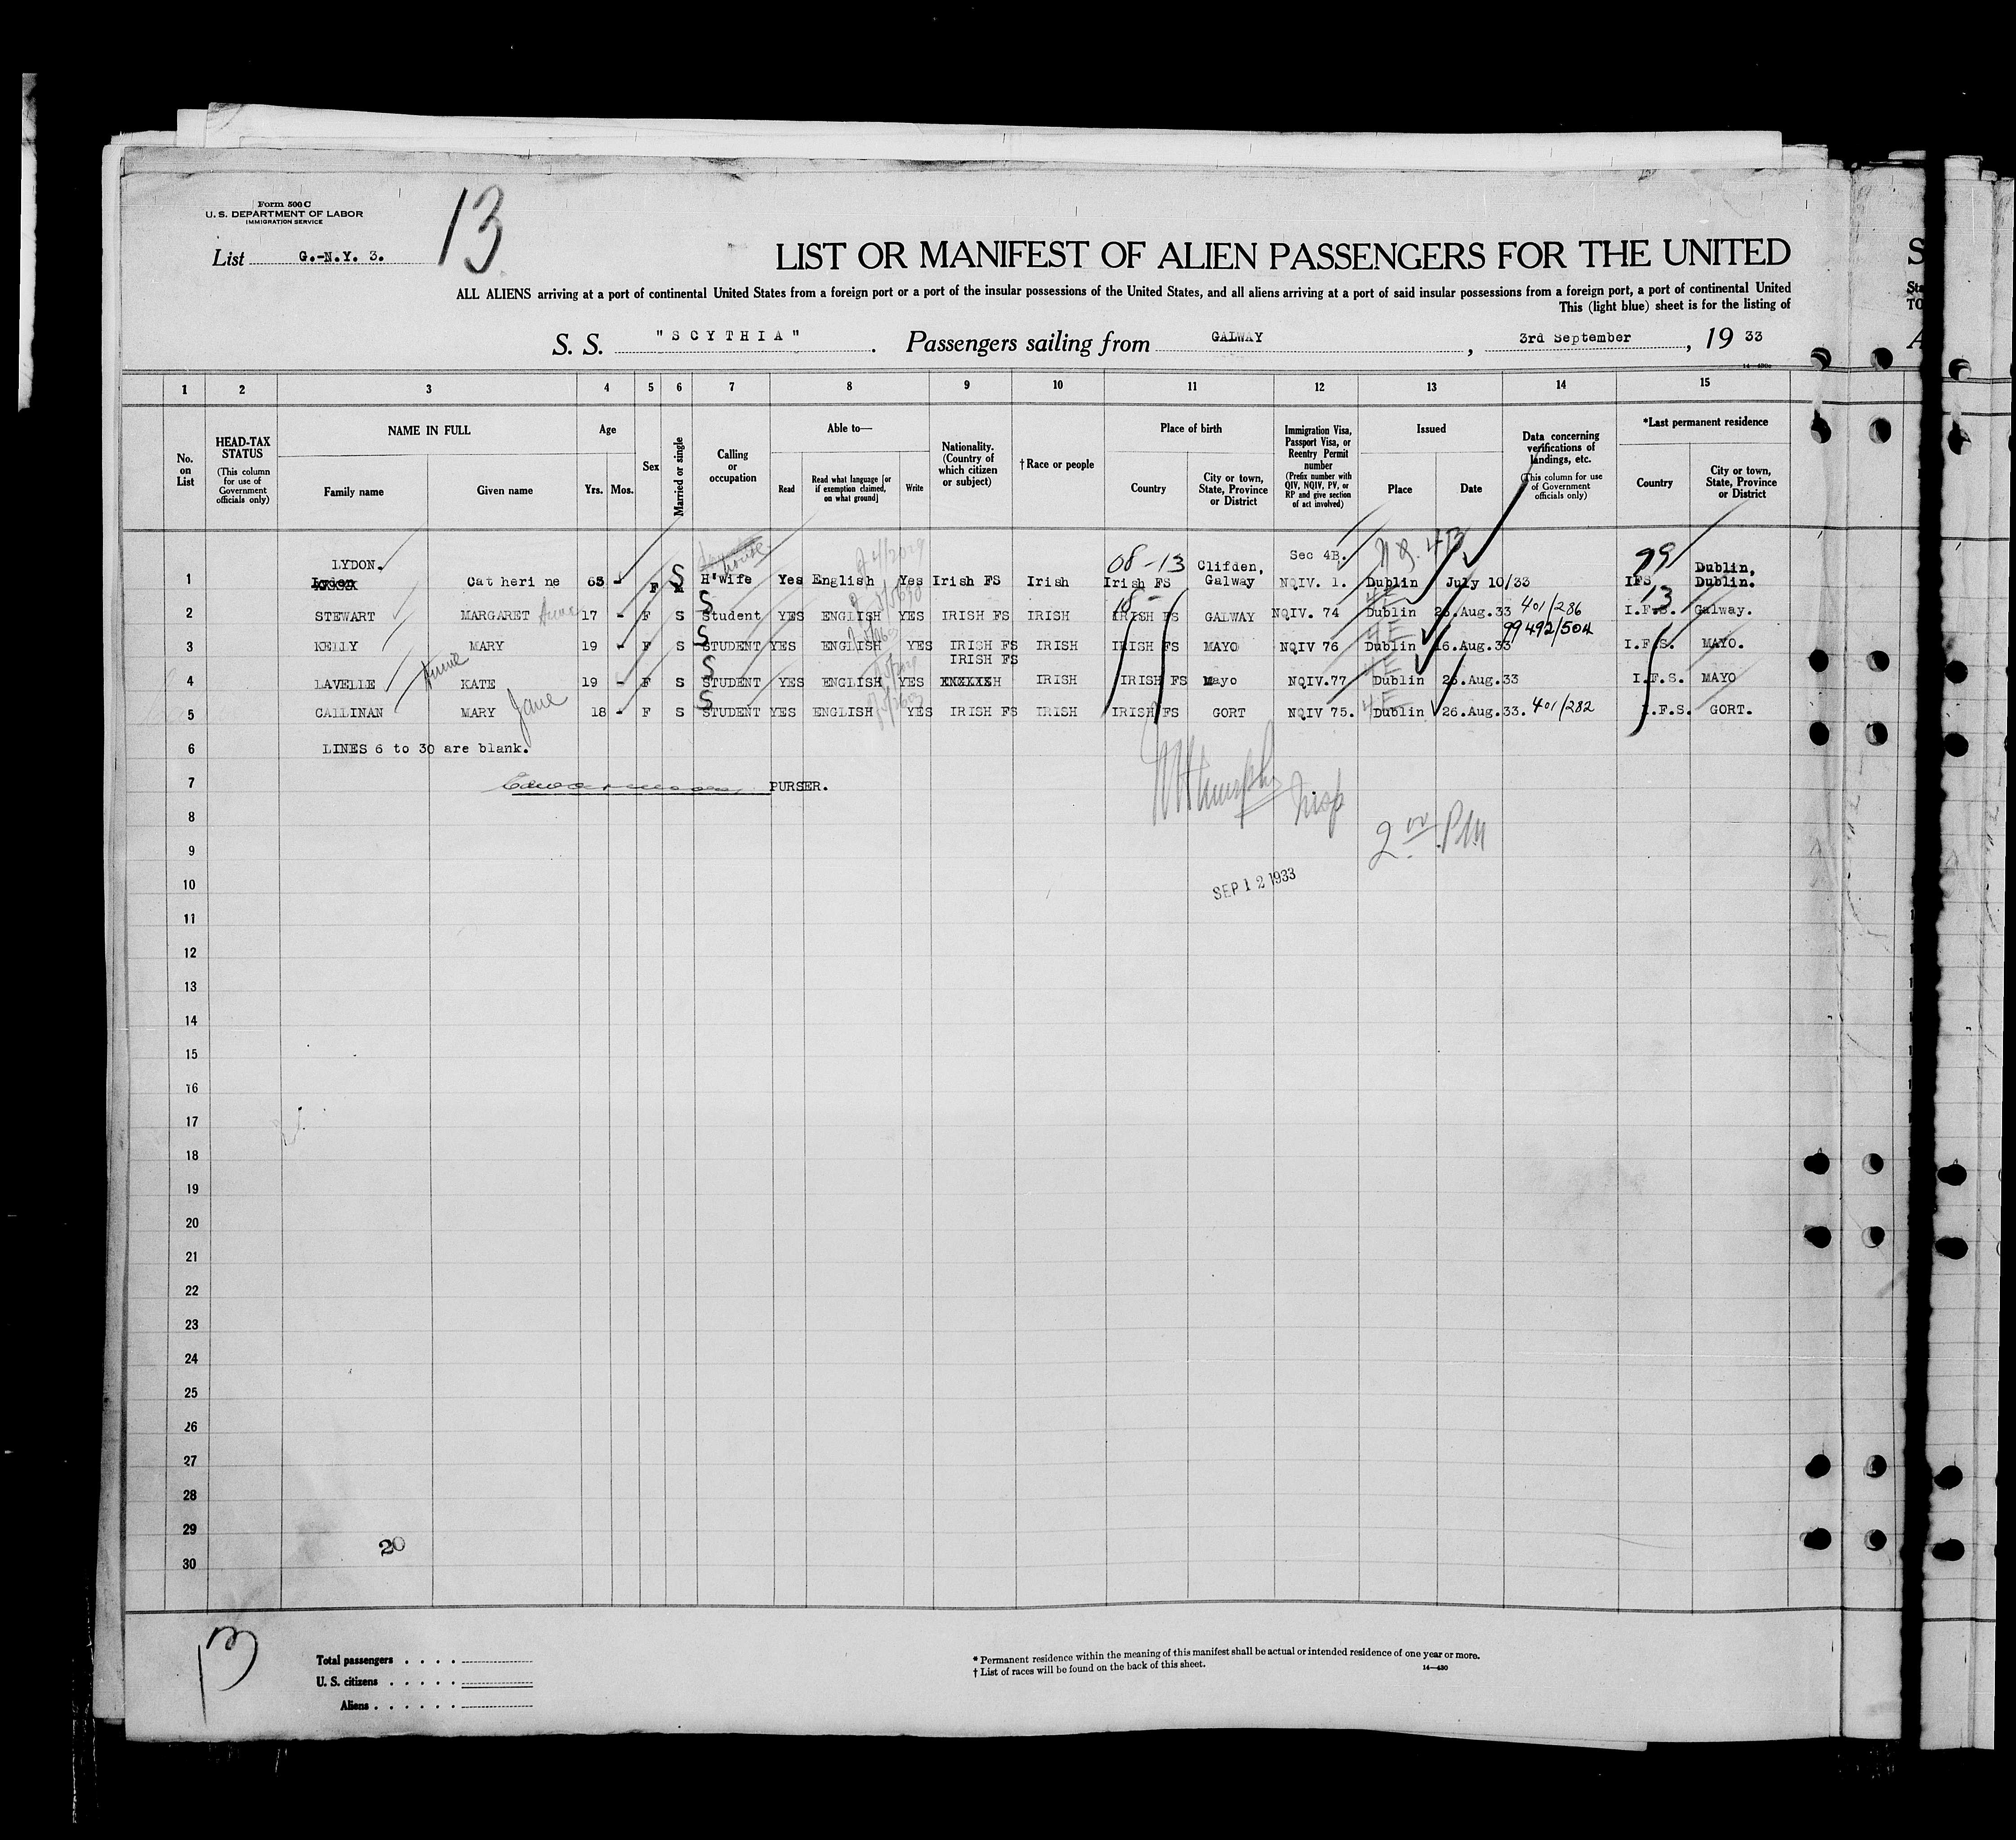 Form 500 C
U. S. DEPARTMENT OF LABOR
IMMIGRATION SERVICE
List G.-N.Y. 3.
13
LIST OR MANIFEST OF ALIEN PASSENGERS FOR THE UNITED
ALL ALIENS arriving at a port of continental United States from a foreign port or a port of the insular possessions of the United States, and all aliens arriving at a port of said insular possessions from a foreign port, a port of continental United
This (light blue) sheet is for the listing of
S. S. "SCYTHIA". Passengers sailing from GALWAY, 3rd September, 19 33
1 2 3 4 5 6 7 8 9 10 11 12 13 14 15
No. on List
HEAD-TAX STATUS (This column for use of Government officials only)
NAME IN FULL Family name Given name
Age Yrs. Mos.
Sex
Married or single
Calling or occupation
Able to— Read Read what language [or if exemption claimed, on what ground] Write
Nationality. (Country of which citizen or subject)
†Race or people
Place of birth Country City or town, State, Province or District
Immigration Visa, Passport Visa, or Reentry Permit number (Prefix number with QIV, NQIV, PV, or RP and give section of act involved)
Issued Place Date
Data concerning verifications of landings, etc. (This column for use of Government officials only)
*Last permanent residence Country City or town, State, Province or District
LYDON. 08-13 Clifden, Sec 4B. 99 Dublin,
1 Catherine 65 - F S H'wife Yes English Yes Irish FS Irish Irish FS Galway NQIV. 1. Dublin July 10/33 IFS Dublin.
2 STEWART MARGARET Anne 17 - F S Student YES ENGLISH YES IRISH FS IRISH IRISH FS GALWAY NQIV. 74 Dublin 26.Aug.33 401/286 I.F.S. Galway.
3 KELLY MARY 19 - F S STUDENT YES ENGLISH YES IRISH FS IRISH IRISH FS MAYO NQIV 76 Dublin 26.Aug.33 99 492/504 I.F.S. MAYO.
IRISH FS
4 LAVELLE Annie KATE 19 - F S STUDENT YES ENGLISH YES IRISH IRISH FS Mayo NQIV.77 Dublin 26.Aug.33 I.F.S. MAYO
5 CALLINAN MARY Jane 18 - F S STUDENT YES ENGLISH YES IRISH FS IRISH IRISH FS GORT NQIV 75. Dublin 26.Aug.33. 401/282 I.F.S. GORT.
6 LINES 6 to 30 are blank.
7 PURSER.
Insp
8
2 00 P.M
9
10 SEP 12 1933
11
12
13
14
15
16
17
18
19
20
21
22
23
24
25
26
27
28
29
20
30
13
Total passengers
U. S. citizens
Aliens
* Permanent residence within the meaning of this manifest shall be actual or intended residence of one year or more.
† List of races will be found on the back of this sheet.
14—430